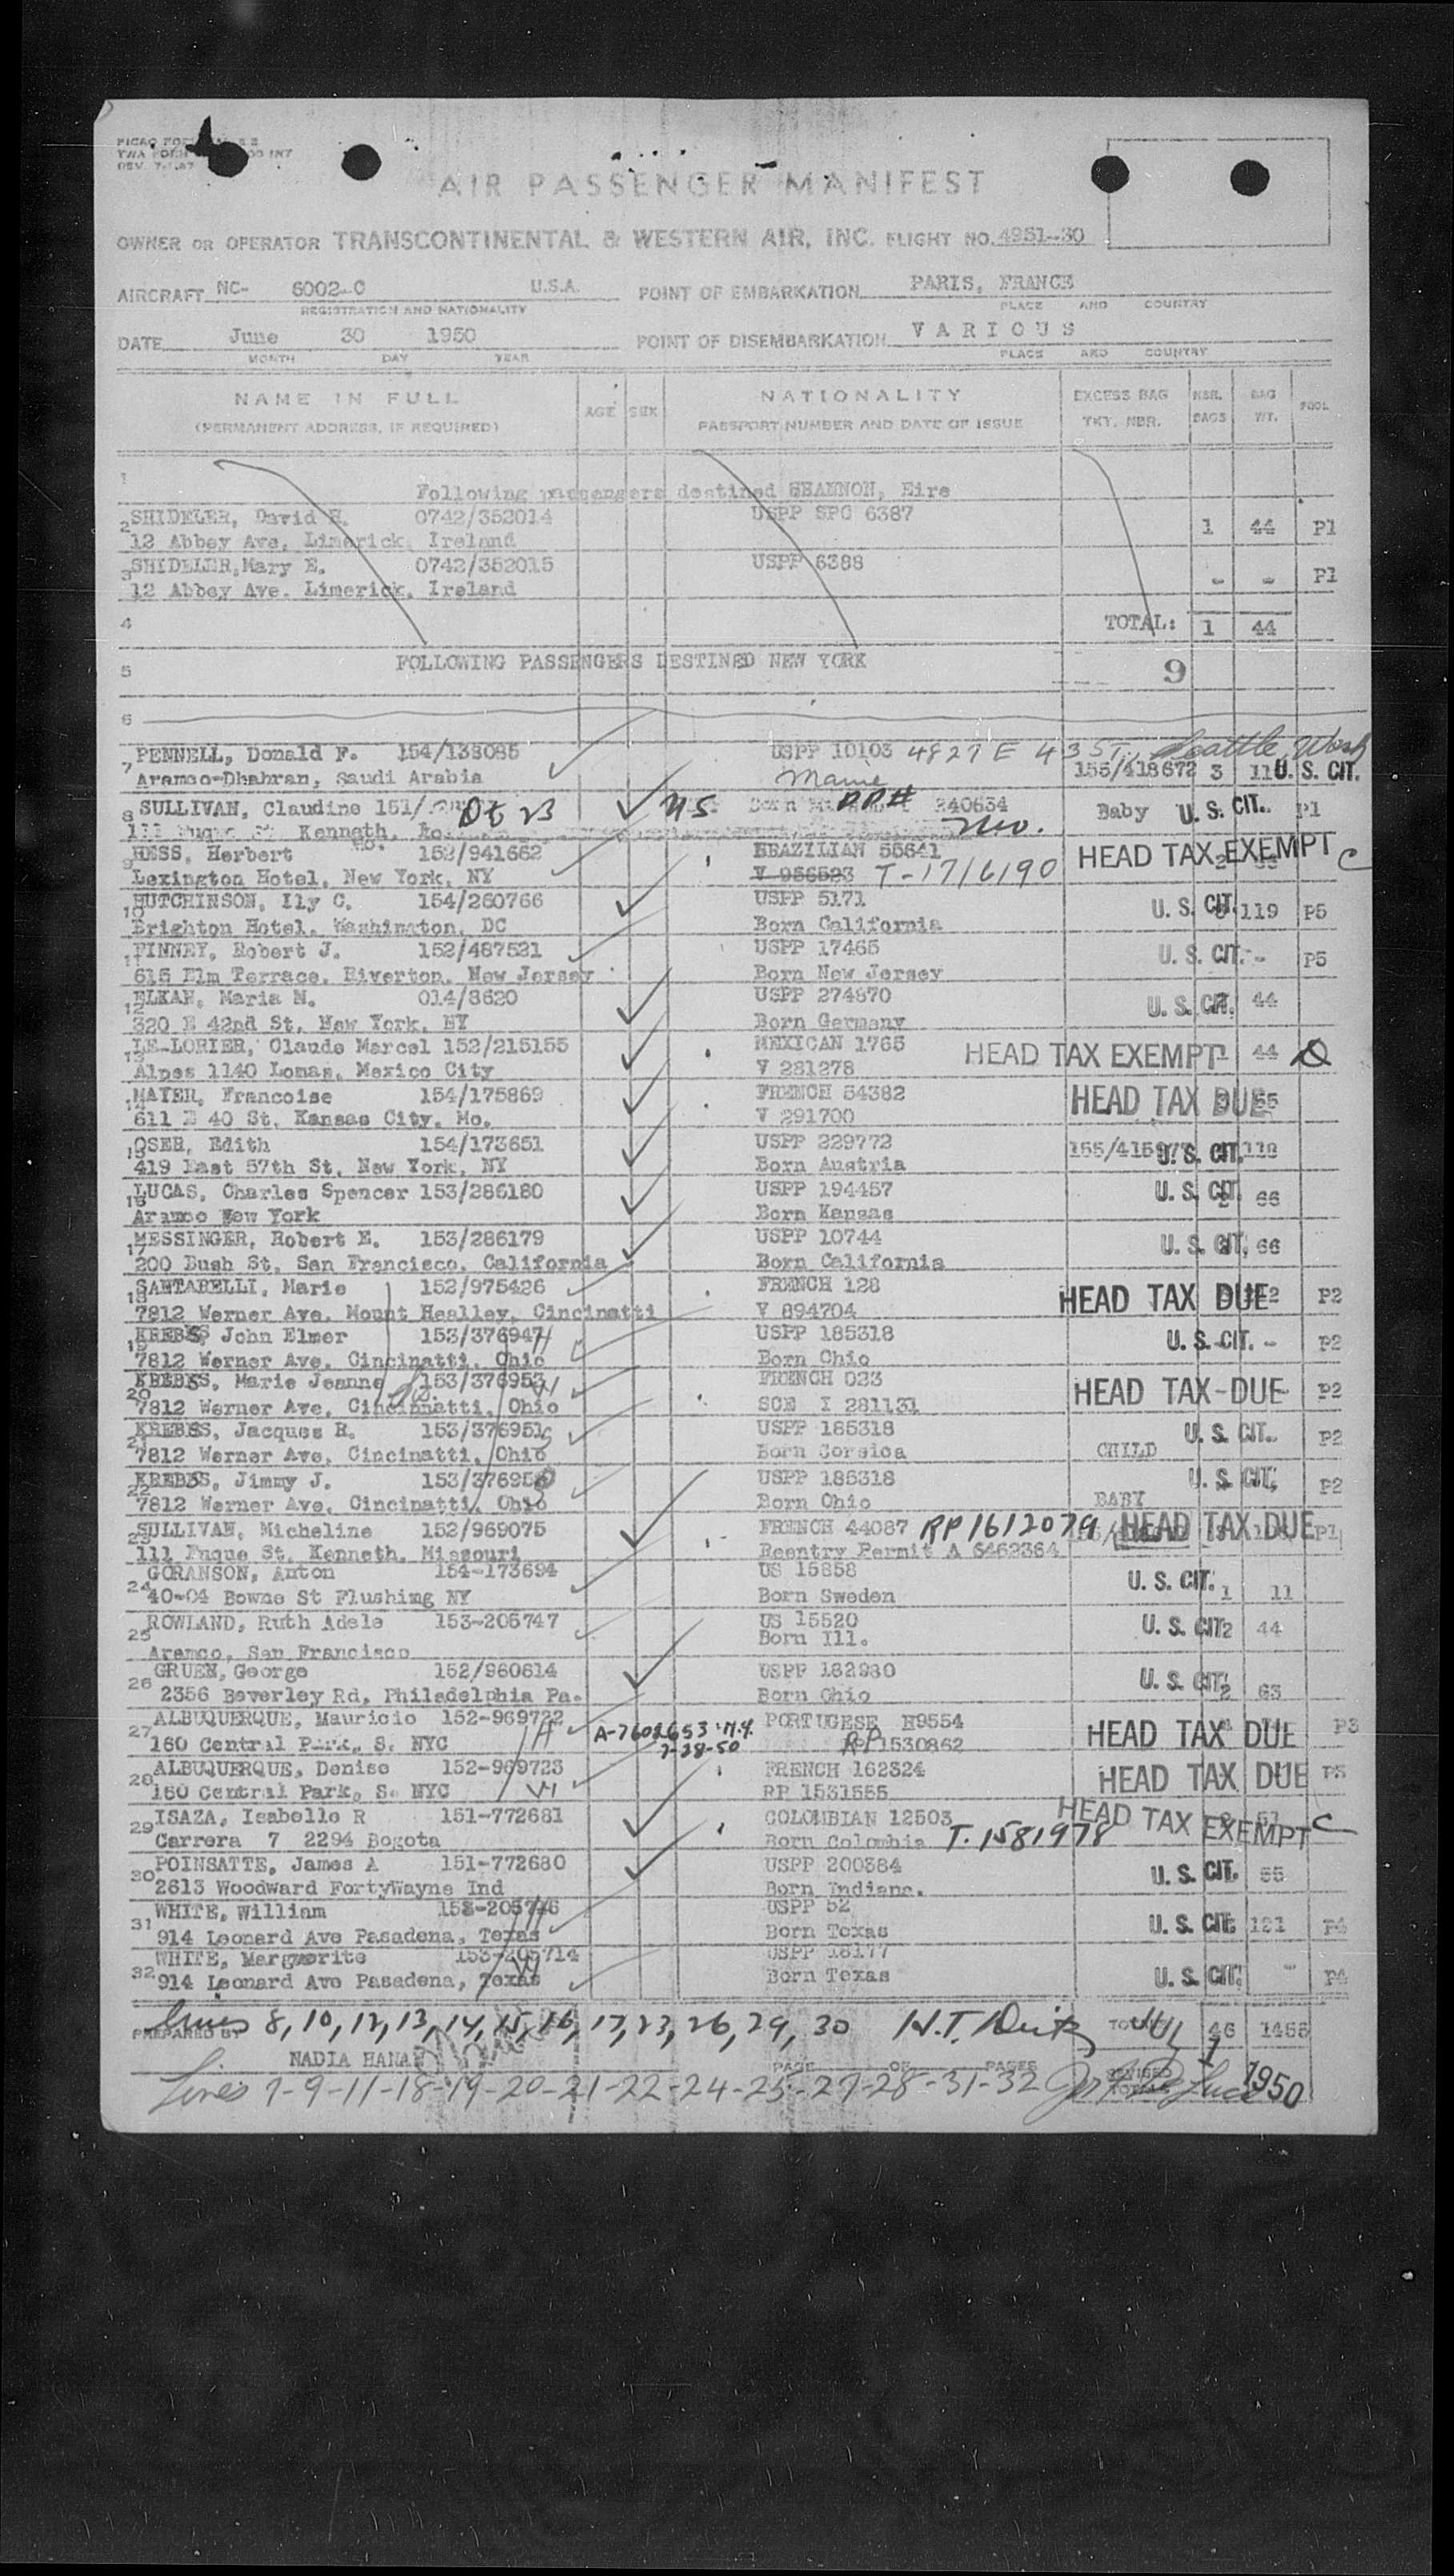 AIR PASSENGER MANIFEST
OWNER OR OPERATOR TRANSCONTINENTAL & WESTERN AIR, INC. FLIGHT NO. 4951-30
AIRCRAFT NC- 6002-C U.S.A. POINT OF EMBARKATION PARIS, FRANCE
REGISTRATION AND NATIONALITY PLACE AND COUNTRY
DATE June 30 1950 POINT OF DISEMBARKATION VARIOUS
MONTH DAY YEAR PLACE AND COUNTRY
NAME IN FULL AGE SEX NATIONALITY EXCESS BAG NBR. BAG POOL
(PERMANENT ADDRESS, IF REQUIRED) PASSPORT NUMBER AND DATE OF ISSUE TKT. NBR. BAGS WT.
1
Following passengers destined SHANNON, Eire
2 SHIDELER, David H. 0742/352014 USPP SPG 6387 1 44 P1
12 Abbey Ave. Limerick, Ireland
3 SHIDELER, Mary E. 0742/352015 USPP 6388 - - P1
12 Abbey Ave. Limerick, Ireland
4 TOTAL: 1 44
5 FOLLOWING PASSENGERS DESTINED NEW YORK 9
6
7 PENNELL, Donald F. 154/138085 USPP 10103 4827 E 43 ST., Seattle, Wash
Aramco-Dhahran, Saudi Arabia 155/418672 3 110 U. S. CIT.
8 SULLIVAN, Claudine 151/ US Born PP# 240634 Baby U. S. CIT. P1
Kenneth, Mo.
9 HESS, Herbert 152/941662 BRAZILIAN 55641 HEAD TAX EXEMPT C
Lexington Hotel, New York, NY V 956523 T-1716190
10 HUTCHINSON, Ily C. 154/260766 USPP 5171 U. S. CIT. 119 P5
Brighton Hotel, Washington, DC Born California
11 FINNEY, Robert J. 152/487521 USPP 17465 U. S. CIT. - P5
615 Elm Terrace, Riverton, New Jersey Born New Jersey
12 ELKAN, Maria N. 014/8620 USPP 274870 U. S. CIT. 44
320 E 42nd St, New York, NY Born Germany
13 LE-LORIER, Claude Marcel 152/215155 MEXICAN 1765 HEAD TAX EXEMPT 1 44
Alpes 1140 Lomas, Mexico City V 281278
14 MAYER, Francoise 154/175869 FRENCH 54382 HEAD TAX DUE 55
611 E 40 St, Kansas City, Mo. V 291700
15 OSER, Edith 154/173651 USPP 229772 U. S. CIT. 118
419 East 57th St, New York, NY Born Austria
16 LUCAS, Charles Spencer 153/286180 USPP 194457 U. S. CIT. 2 66
Aramco New York Born Kansas
17 MESSINGER, Robert E. 153/286179 USPP 10744 U. S. CIT. 66
200 Bush St, San Francisco, California Born California
18 SANTARELLI, Marie 152/975426 FRENCH 128 HEAD TAX DUE P2
7812 Werner Ave, Mount Healley, Cincinatti V 894704
19 KREBS, John Elmer 153/376947 USPP 185318 U. S. CIT. - P2
7812 Werner Ave, Cincinatti, Ohio Born Ohio
20 KREBS, Marie Jeanne 153/376953 FRENCH 023 HEAD TAX DUE P2
7812 Werner Ave, Cincinnatti, Ohio SCE I 281131
21 KREBS, Jacques R. 153/376951 USPP 185318 U. S. CIT. P2
7812 Werner Ave, Cincinatti, Ohio Born Corsica CHILD
22 KREBS, Jimmy J. 153/376950 USPP 185318 U. S. CIT. P2
7812 Werner Ave, Cincinatti, Ohio Born Ohio BABY
23 SULLIVAN, Micheline 152/969075 FRENCH 44087 RP1612079 HEAD TAX DUE P1
111 Fuque St, Kenneth, Missouri Reentry Permit A 6462384
24 GORANSON, Anton 154-173694 US 15858 U. S. CIT. 1 11
40-04 Bowne St Flushing NY Born Sweden
25 ROWLAND, Ruth Adele 153-205747 US 15520 U. S. CIT. 2 44
Aramco, San Francisco Born Ill.
26 GRUEN, George 152/960614 USPP 162980 U. S. CIT. 2 63
2356 Beverley Rd, Philadelphia Pa. Born Ohio
27 ALBUQUERQUE, Mauricio 152-969722 H A-7602653 N.Y. PORTUGESE H9554 HEAD TAX DUE P3
160 Central Park, S. NYC 7-28-50 RP 1530862
28 ALBUQUERQUE, Denise 152-969723 FRENCH 162324 HEAD TAX DUE P3
160 Central Park, S. NYC W RP 1531555
29 ISAZA, Isabelle R 151-772681 COLOMBIAN 12503 HEAD TAX EXEMPT C
Carrera 7 2294 Bogota Born Colombia T-1581978
30 POINSATTE, James A 151-772680 USPP 200384 U. S. CIT. 55
2613 Woodward FortyWayne Ind Born Indiana.
31 WHITE, William 153-205746 USPP 52 U. S. CIT. 121 P4
914 Leonard Ave Pasadena, Texas Born Texas
32 WHITE, Marguerite 153-205714 USPP 18177 U. S. CIT. - P4
914 Leonard Ave Pasadena, Texas Born Texas
Lines 8, 10, 12, 13, 14, 15, 16, 17, 23, 26, 29, 30 46 1455
PREPARED BY
NADIA HANAN PAGE OF PAGES
Lines 7-9-11-18-19-20-21-22-24-25-27-28-31-32 1950